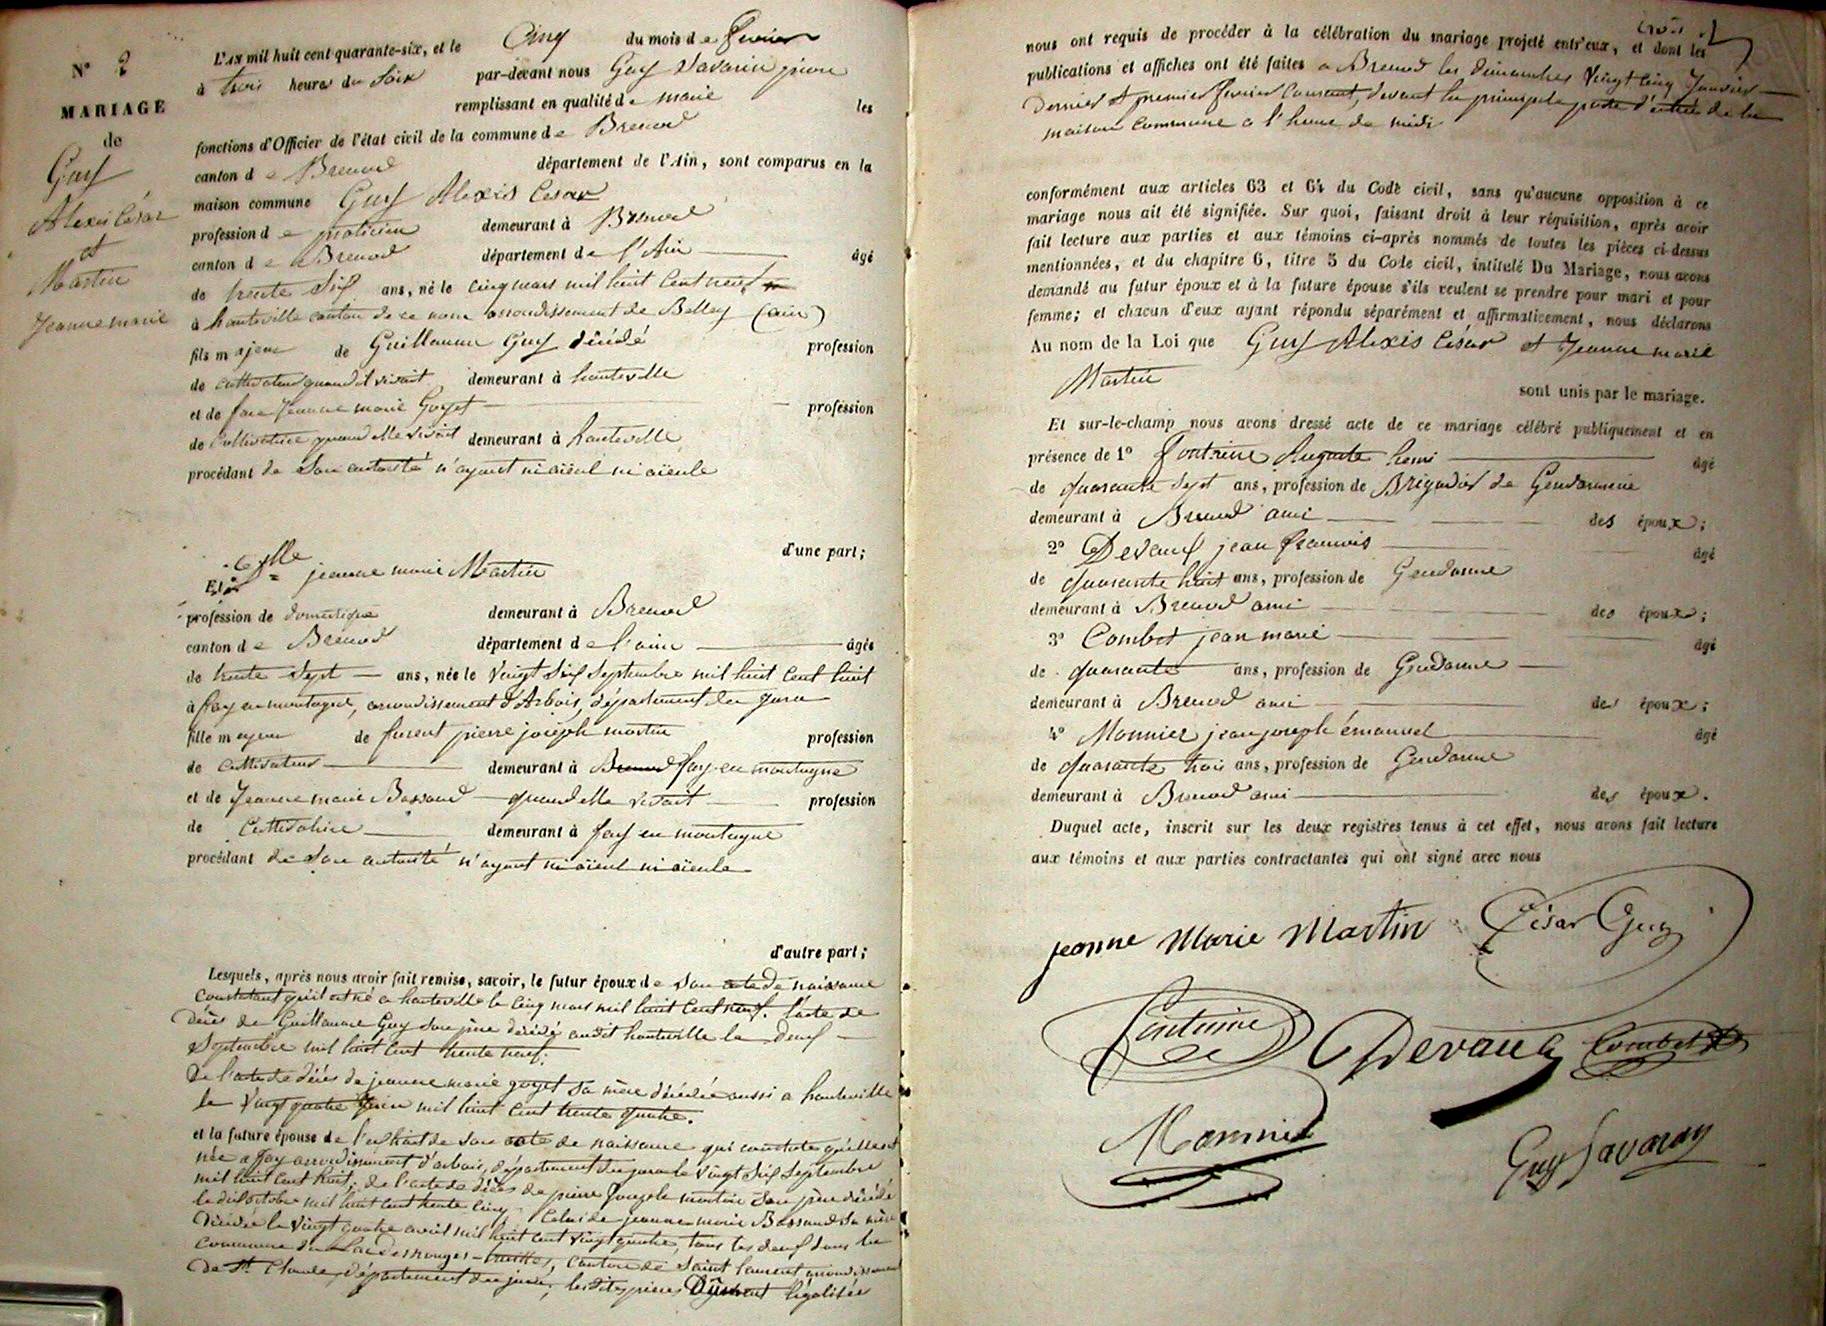 N° 2
MARIAGE
de
Guy
Alexis César
et
Martin
Jeanne marie
L'AN mil huit cent quarante-six, et le Cinq du mois de fevrier
à trois heures du Soir par-devant nous Guy Savarin pierre
remplissant en qualité de maire les
fonctions d'Officier de l'état civil de la commune de Brenod
canton de Brenod département de l'Ain, sont comparus en la
maison commune Guy Alexis Cesar
profession de praticien demeurant à Brenod
canton de Brenod département de l'Ain âgé
de trente Six ans, né le cinq mars mil huit cent neuf
à hauteville canton de ce nom arrondissement de Belley (ain)
fils majeur de Guillaume Guy décédé profession
de cultivateur quand il vivait demeurant à hauteville
et de feue Jeanne marie Goyet profession
de Cultivatrice quand elle vivait demeurant à hauteville
procédant de Son autorité n'ayant ni aïeul ni aïeule
d'une part;
Et Dlle jeanne marie Martin
profession de domestique demeurant à Brenod
canton de Brenod département de l'ain âgée
de trente Sept ans, née le Vingt Six Septembre mil huit cent huit
à fay en montagne, arrondissement d'Arbois, département du jura
fille majeure de furent pierre joseph martin profession
de cultivateur demeurant à Brenod fay en montagne
et de Jeanne marie Bassand quand elle vivait profession
de Cultivatrice demeurant à fay en montagne
procédant de Son autorité n'ayant ni aïeul ni aïeule
d'autre part;
Lesquels, après nous avoir fait remise, savoir, le futur époux de son acte de naissance
constatant qu'il est né a hauteville le Cinq mars mil huit cent neuf. l'acte de
décès de Guillaume Guy son père décédé audit hauteville le Deux
Septembre mil huit cent trente neuf.
De l'acte de décès de jeanne marie goyet sa mère décédée aussi a hauteville
le Vingt quatre juin mil huit cent trente quatre.
et la future épouse de l'extrait de son acte de naissance qui constate qu'elle est
née a fay arrondissement d'arbois, département du jura le Vingt Six Septembre
mil huit cent huit; de l'acte de décès de pierre Joseph martin Son père décédé
le dix octobre mil huit cent trente cinq. Celui de jeanne marie Bassand Sa mère
Décédée le Vingt quatre avril mil huit cent vingt quatre, tous les deux dans la
commune du Lac des rouges-truittes, canton de Saint laurent arrondissement
de St. Claude, département du jura; les dites pièces Dûment légalisées
nous ont requis de procéder à la célébration du mariage projeté entr'eux, et dont les
publications et affiches ont été faites a Brenod les dimanches Vingt cinq Janvier
Dernier et premier fevrier Courant, devant la principale porte d'entrée de la
maison Commune a l'heure de midi
conformément aux articles 63 et 64 du Code civil, sans qu'aucune opposition à ce
mariage nous ait été signifiée. Sur quoi, faisant droit à leur réquisition, après avoir
fait lecture aux parties et aux témoins ci-après nommés de toutes les pièces ci-dessus
mentionnées, et du chapitre 6, titre 5 du Code civil, intitulé Du Mariage, nous avons
demandé au futur époux et à la future épouse s'ils veulent se prendre pour mari et pour
femme; et chacun d'eux ayant répondu séparément et affirmativement, nous déclarons
Au nom de la Loi que Guy Alexis César et Jeanne marie
Martin
sont unis par le mariage.
Et sur-le-champ nous avons dressé acte de ce mariage célébré publiquement et en
présence de 1° fontaine Auguste henri âgé
de quarante Sept ans, profession de Brigadier de Gendarmerie
demeurant à Brenod ami des époux;
2° Devaux jean francois âgé
de quarante huit ans, profession de Gendarme
demeurant à Brenod ami des époux;
3° Combet jean marie âgé
de quarante ans, profession de Gendarme
demeurant à Brenod ami des époux;
4° Monnier jean joseph émanuel âgé
de quarante trois ans, profession de Gendarme
demeurant à Brenod ami des époux.
Duquel acte, inscrit sur les deux registres tenus à cet effet, nous avons fait lecture
aux témoins et aux parties contractantes qui ont signé avec nous
jeanne Marie Martin César Guy
Fontaine Devaux Combet
Monnier
Guy Savarin